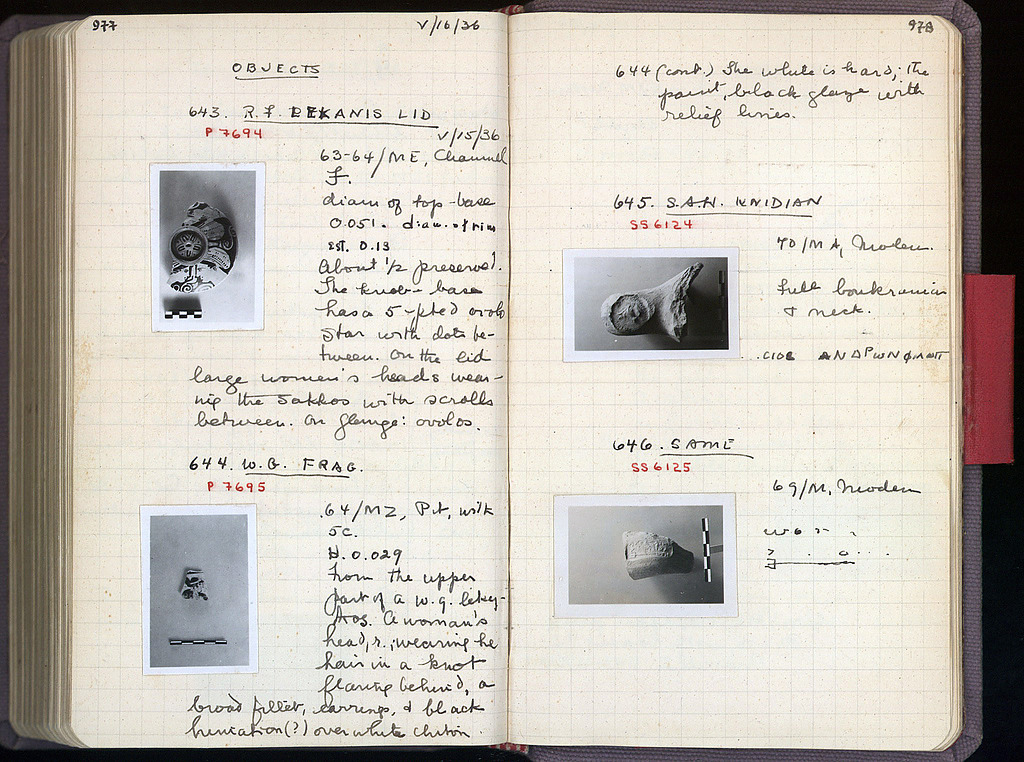 977
V/16/36
OBJECTS
643. R.F. LEKANIS LID
P 7694
V/15/36
63-64/ME, Channel
F.
diam of top-base
0.051. diam. of rim
EST. 0.13
About 1/2 preserved.
The knob-base
has a 5-pted ovolo
star with dots be-
tween. On the lid
large women's heads wear-
ing the sakkos with scrolls
between. On flange: ovolos.
644. W.G. FRAG.
P 7695
64/MZ, Pit, with
5C.
H. 0.029
From the upper
part of a w.g. leky-
thos. A woman's
head, r., wearing he
hair in a knot
flaring behind, a
broad fillet, earrings, & black
himation(?) over white chiton.
978
644 (cont.) The white is hard; the
paint, black glaze with
relief lines.
645. S.A.H. KNIDIAN
SS 6124
70/MA, Modern.
Full boukranion
& neck.
646. SAME
SS 6125
69/M, Modern